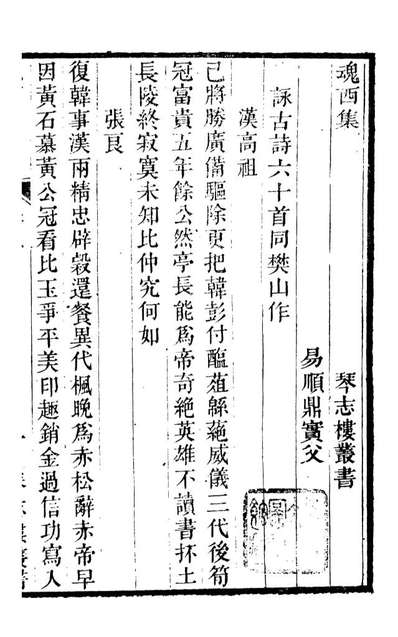 魂西集
琴志樓叢書
易順鼎實父
詠古詩六十首同樊山作
漢高祖
已將勝廣備驅除更把韓彭付醢葅緜蕝威儀三代後筍
冠富貴五年餘公然亭長能爲帝奇絶英雄不讀書抔土
長陵終寂寞未知比仲究何如
張良
復韓事漢兩精忠辟穀還餐異代楓晚爲赤松辭赤帝早
因黃石慕黃公冠看比玉爭平美印趣銷金過信功寫入